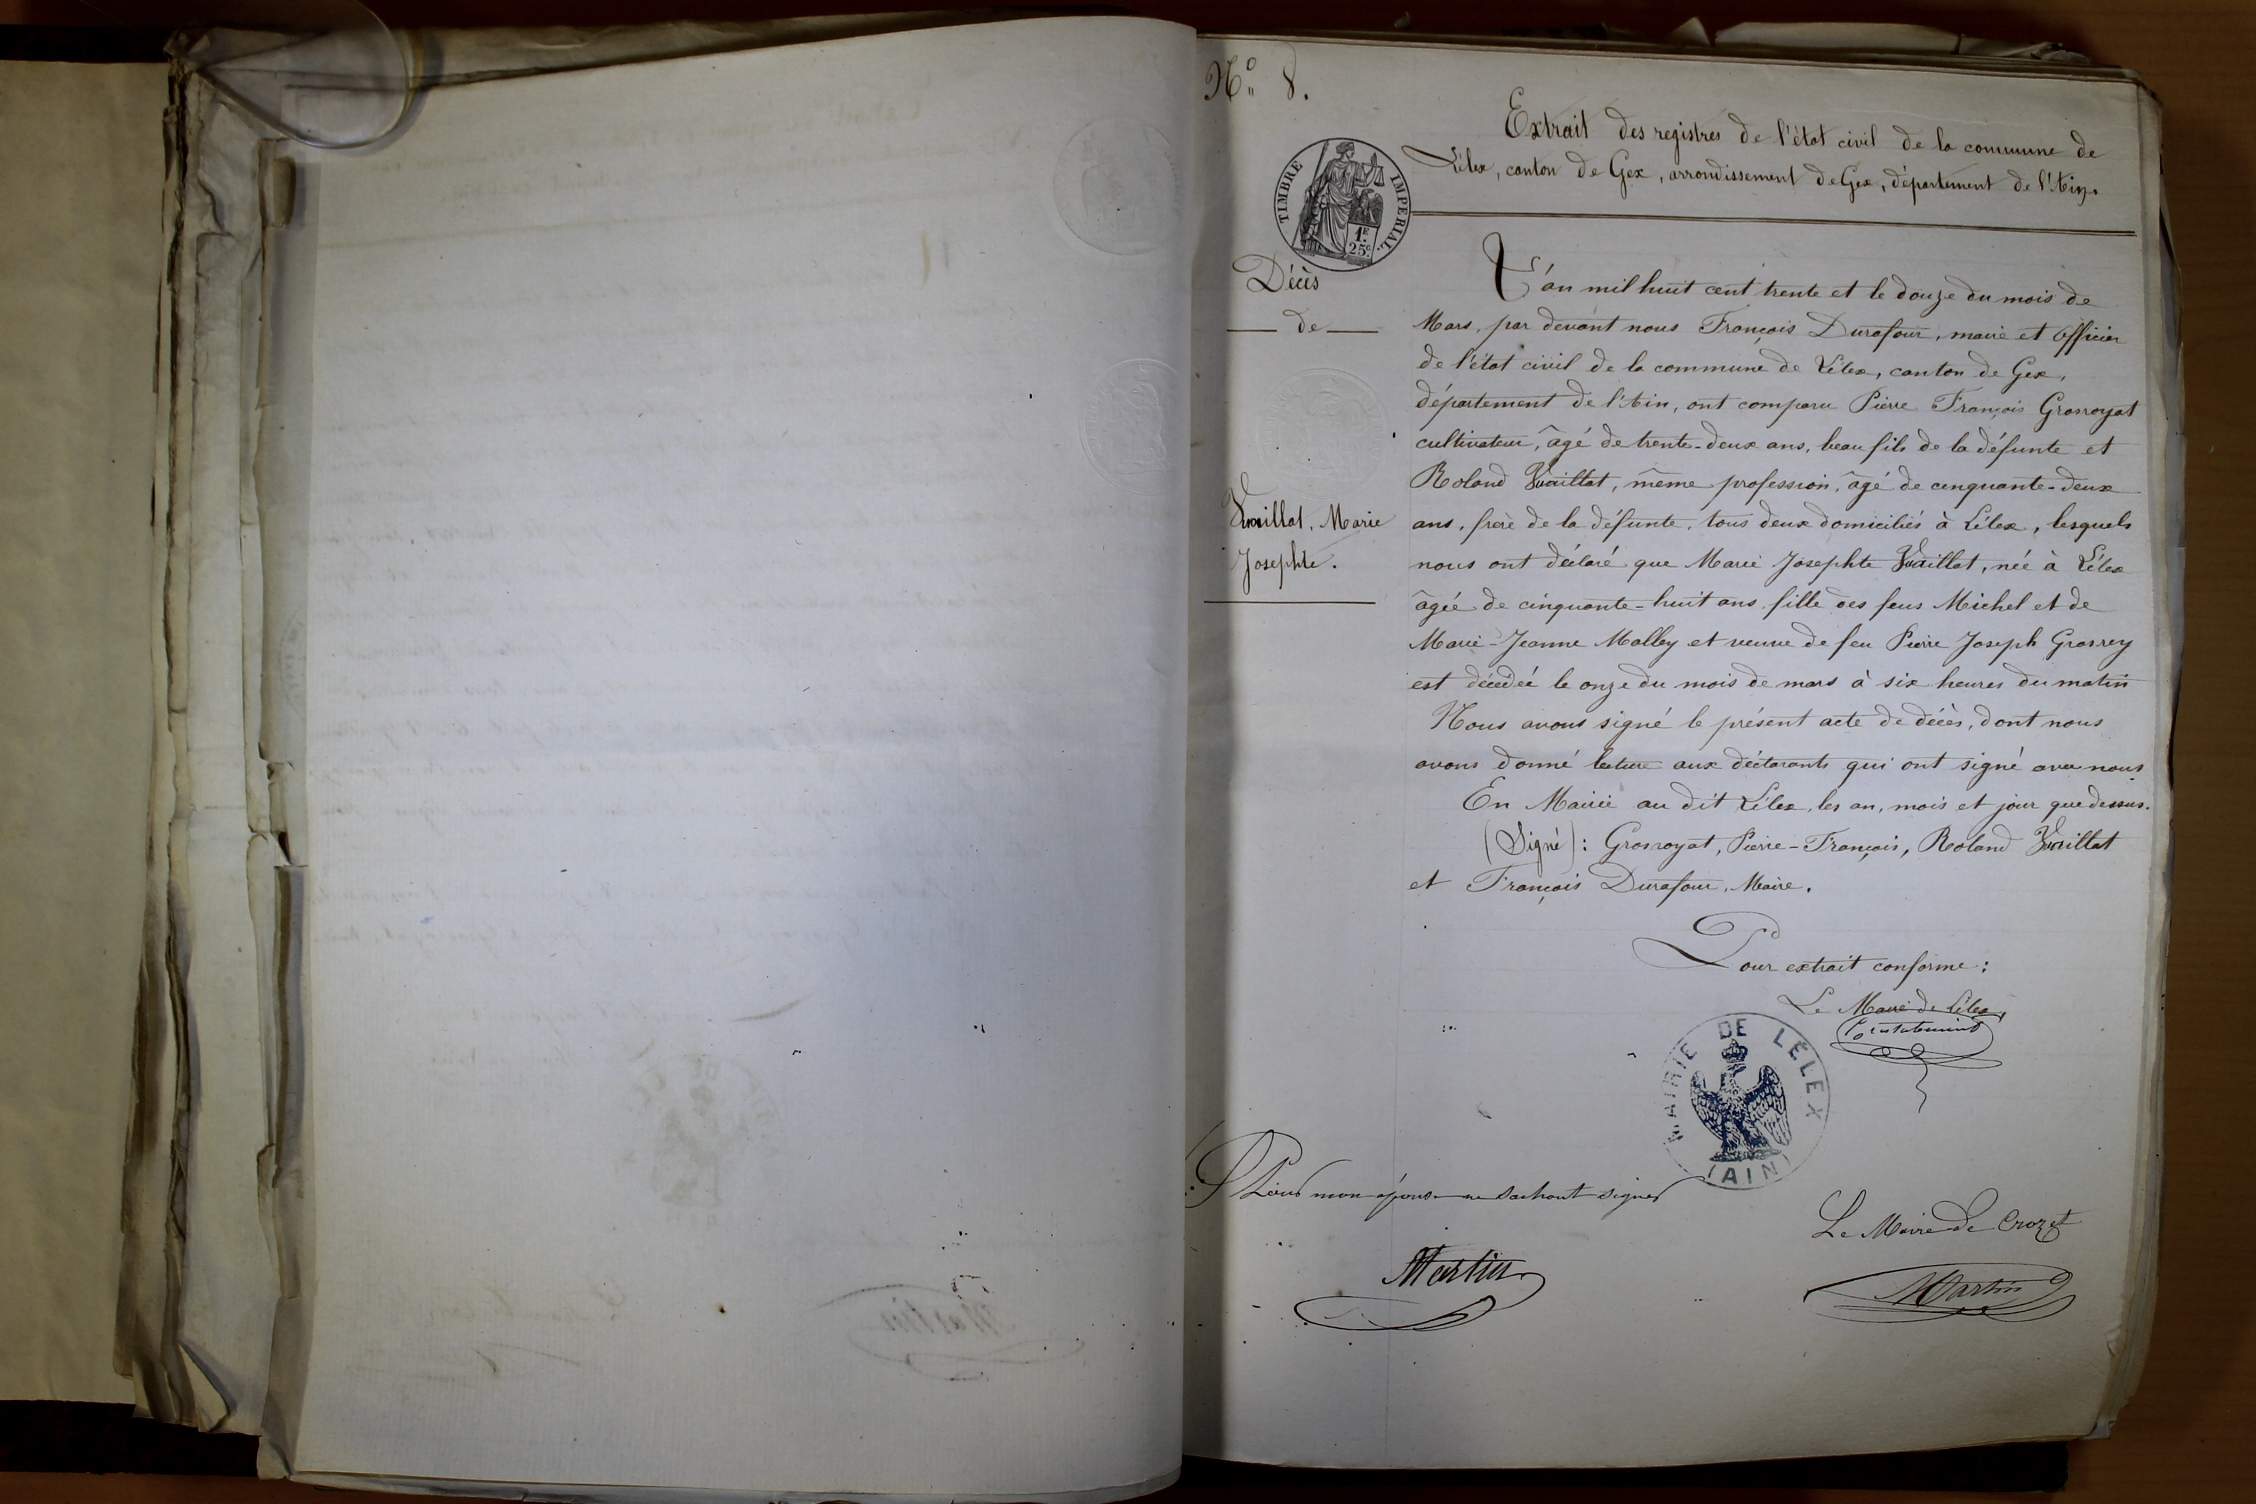 Nº 8.
Extrait des registres de l'état civil de la commune de
Lélex, canton de Gex, arrondissement de Gex, département de l'Ain.
TIMBRE IMPERIAL.
1F
25c
Décès
de
Vuaillat, Marie
Josephte.
L'an mil huit cent trente et le douze du mois de
Mars, par devant nous François Durafour, maire et Officier
de l'état civil de la commune de Lélex, canton de Gex,
département de l'Ain, ont comparu Pierre François Grosroyat
cultivateur, âgé de trente-deux ans, beau fils de la défunte et
Roland Vuaillat, même profession, âgé de cinquante-deux
ans, frère de la défunte, tous deux domiciliés à Lélex, lesquels
nous ont déclaré que Marie Josephte Vuaillat, née à Lélex
âgée de cinquante-huit ans fille des feus Michel et de
Marie-Jeanne Malley et veuve de feu Pierre Joseph Grosrey
est décédée le onze du mois de mars à six heures du matin
Nous avons signé le présent acte de décès, dont nous
avons donné lecture aux déclarants qui ont signé avec nous
En Mairie au dit Lélex, les an, mois et jour que dessus.
(Signé): Grosroyat, Pierre-François, Roland Vuaillat
et François Durafour, Maire.
Pour extrait conforme:
Le Maire de Lélex,
MAIRIE DE LÉLEX
(AIN)
mon épouse ne sachant signer
Martin
Le Maire de Crozet
Martin